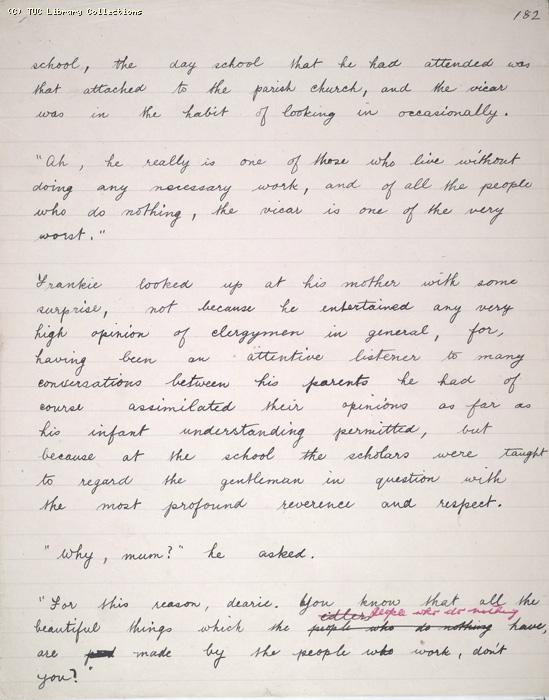 (C) TUC Library Collections
182
school, the day school that he had attended was
that attached to the parish church, and the vicar
was in the habit of looking in occasionally.
"Ah, he really is one of those who live without
doing any necessary work, and of all the people
who do nothing, the vicar is one of the very
worst."
Frankie looked up at his mother with some
surprise, not because he entertained any very
high opinion of clergymen in general, for,
having been an attentive listener to many
conversations between his parents he had of
course assimilated their opinions as far as
his infant understanding permitted, but
because at the school the scholars were taught
to regard the gentleman in question with
the most profound reverence and respect.
"Why, mum?" he asked.
"For this reason, dearie. You know that all the
idlers people who do nothing
beautiful things which the people who do nothing have,
are made by the people who work, don't
you?